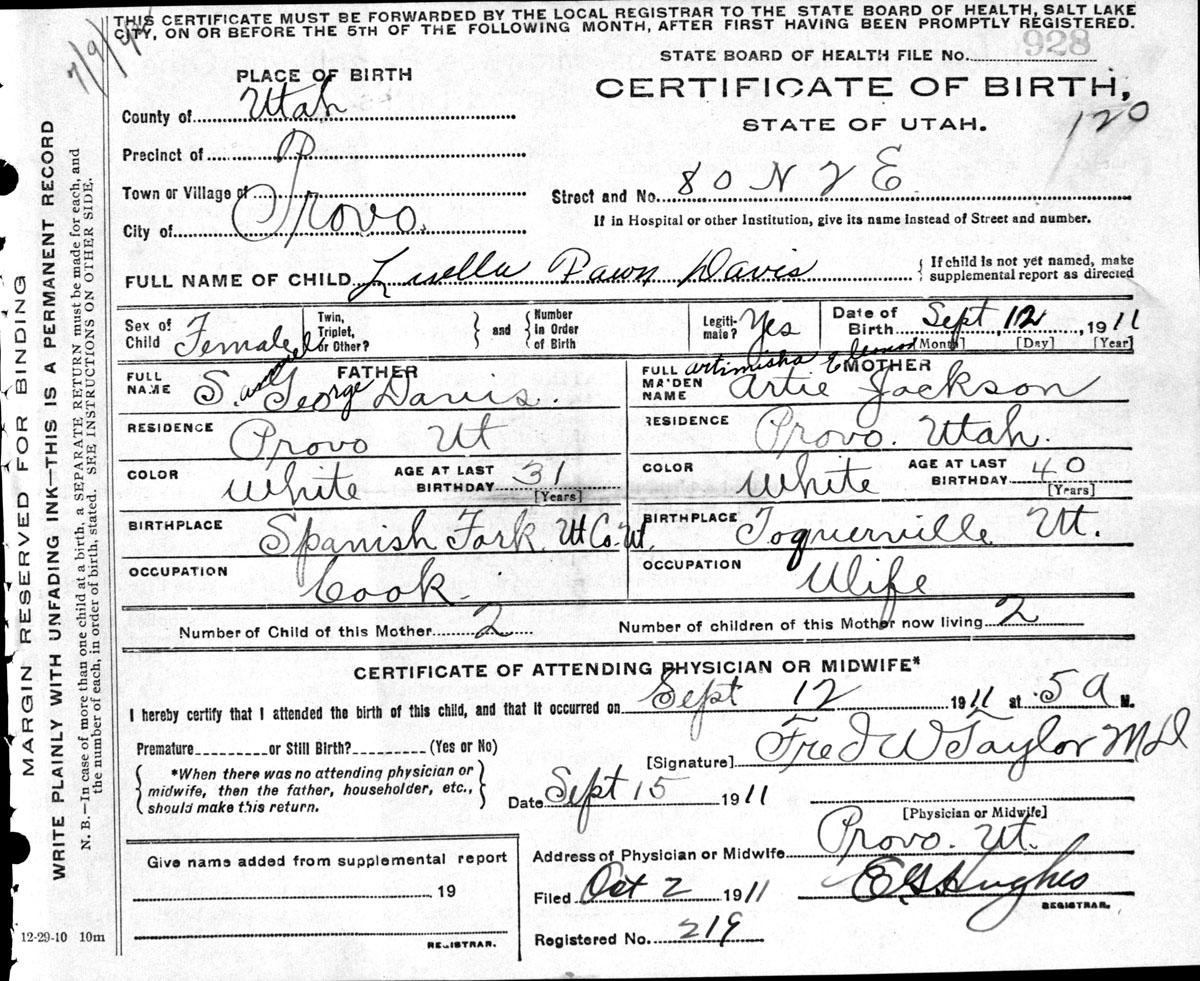 THIS CERTIFICATE MUST BE FORWARDED BY THE LOCAL REGISTRAR TO THE STATE BOARD OF HEALTH, SALT LAKE
CITY, ON OR BEFORE THE 5TH OF THE FOLLOWING MONTH, AFTER FIRST HAVING BEEN PROMPTLY REGISTERED.
STATE BOARD OF HEALTH FILE No. 928
PLACE OF BIRTH
CERTIFICATE OF BIRTH,
STATE OF UTAH.
120
County of Utah
Precinct of P
Town or Village of
Street and No. 80 N 2 E
City of Provo.
If in Hospital or other Institution, give its name instead of Street and number.
FULL NAME OF CHILD Davis
If child is not yet named, make
supplemental report as directed
Sex of Child Female
Twin, Triplet, or Other?
and
Number in Order of Birth
Legiti-mate? Yes
Date of Birth Sept 12, 1911
[Month] [Day] [Year]
FATHER
FULL NAME S. George Davis.
RESIDENCE Provo Ut
COLOR White
AGE AT LAST BIRTHDAY 31
[Years]
BIRTHPLACE Spanish Fork. Ut Co. Ut.
OCCUPATION Cook
MOTHER
FULL MAIDEN NAME artimisha Artie Jackson
RESIDENCE Provo. Utah.
COLOR White
AGE AT LAST BIRTHDAY 40
[Years]
BIRTHPLACE Toquerville Ut.
OCCUPATION Wife
Number of Child of this Mother 2
Number of children of this Mother now living 2
CERTIFICATE OF ATTENDING PHYSICIAN OR MIDWIFE*
I hereby certify that I attended the birth of this child, and that it occurred on Sept 12 1911 at 5 a M.
Premature or Still Birth? (Yes or No)
[Signature] Fred W Taylor MD
*When there was no attending physician or
midwife, then the father, householder, etc.,
should make this return.
Date Sept 15 1911
[Physician or Midwife]
Address of Physician or Midwife Provo. Ut.
Give name added from supplemental report
19
REGISTRAR.
Filed Oct 2 1911
Hughes
REGISTRAR.
Registered No. 219
12-29-10 10m
MARGIN RESERVED FOR BINDING
WRITE PLAINLY WITH UNFADING INK—THIS IS A PERMANENT RECORD
N. B.—In case of more than one child at a birth, a SEPARATE RETURN must be made for each, and
the number of each, in order of birth, stated. SEE INSTRUCTIONS ON OTHER SIDE.